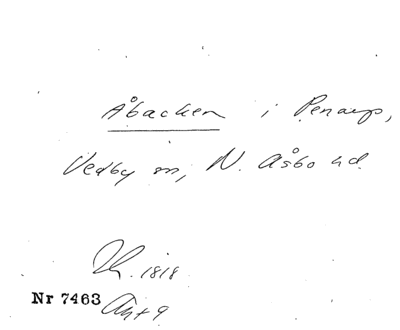 Åbacken i Penarp,
Vedby sn, N. Åsbo hd.
1818
Nr 7463